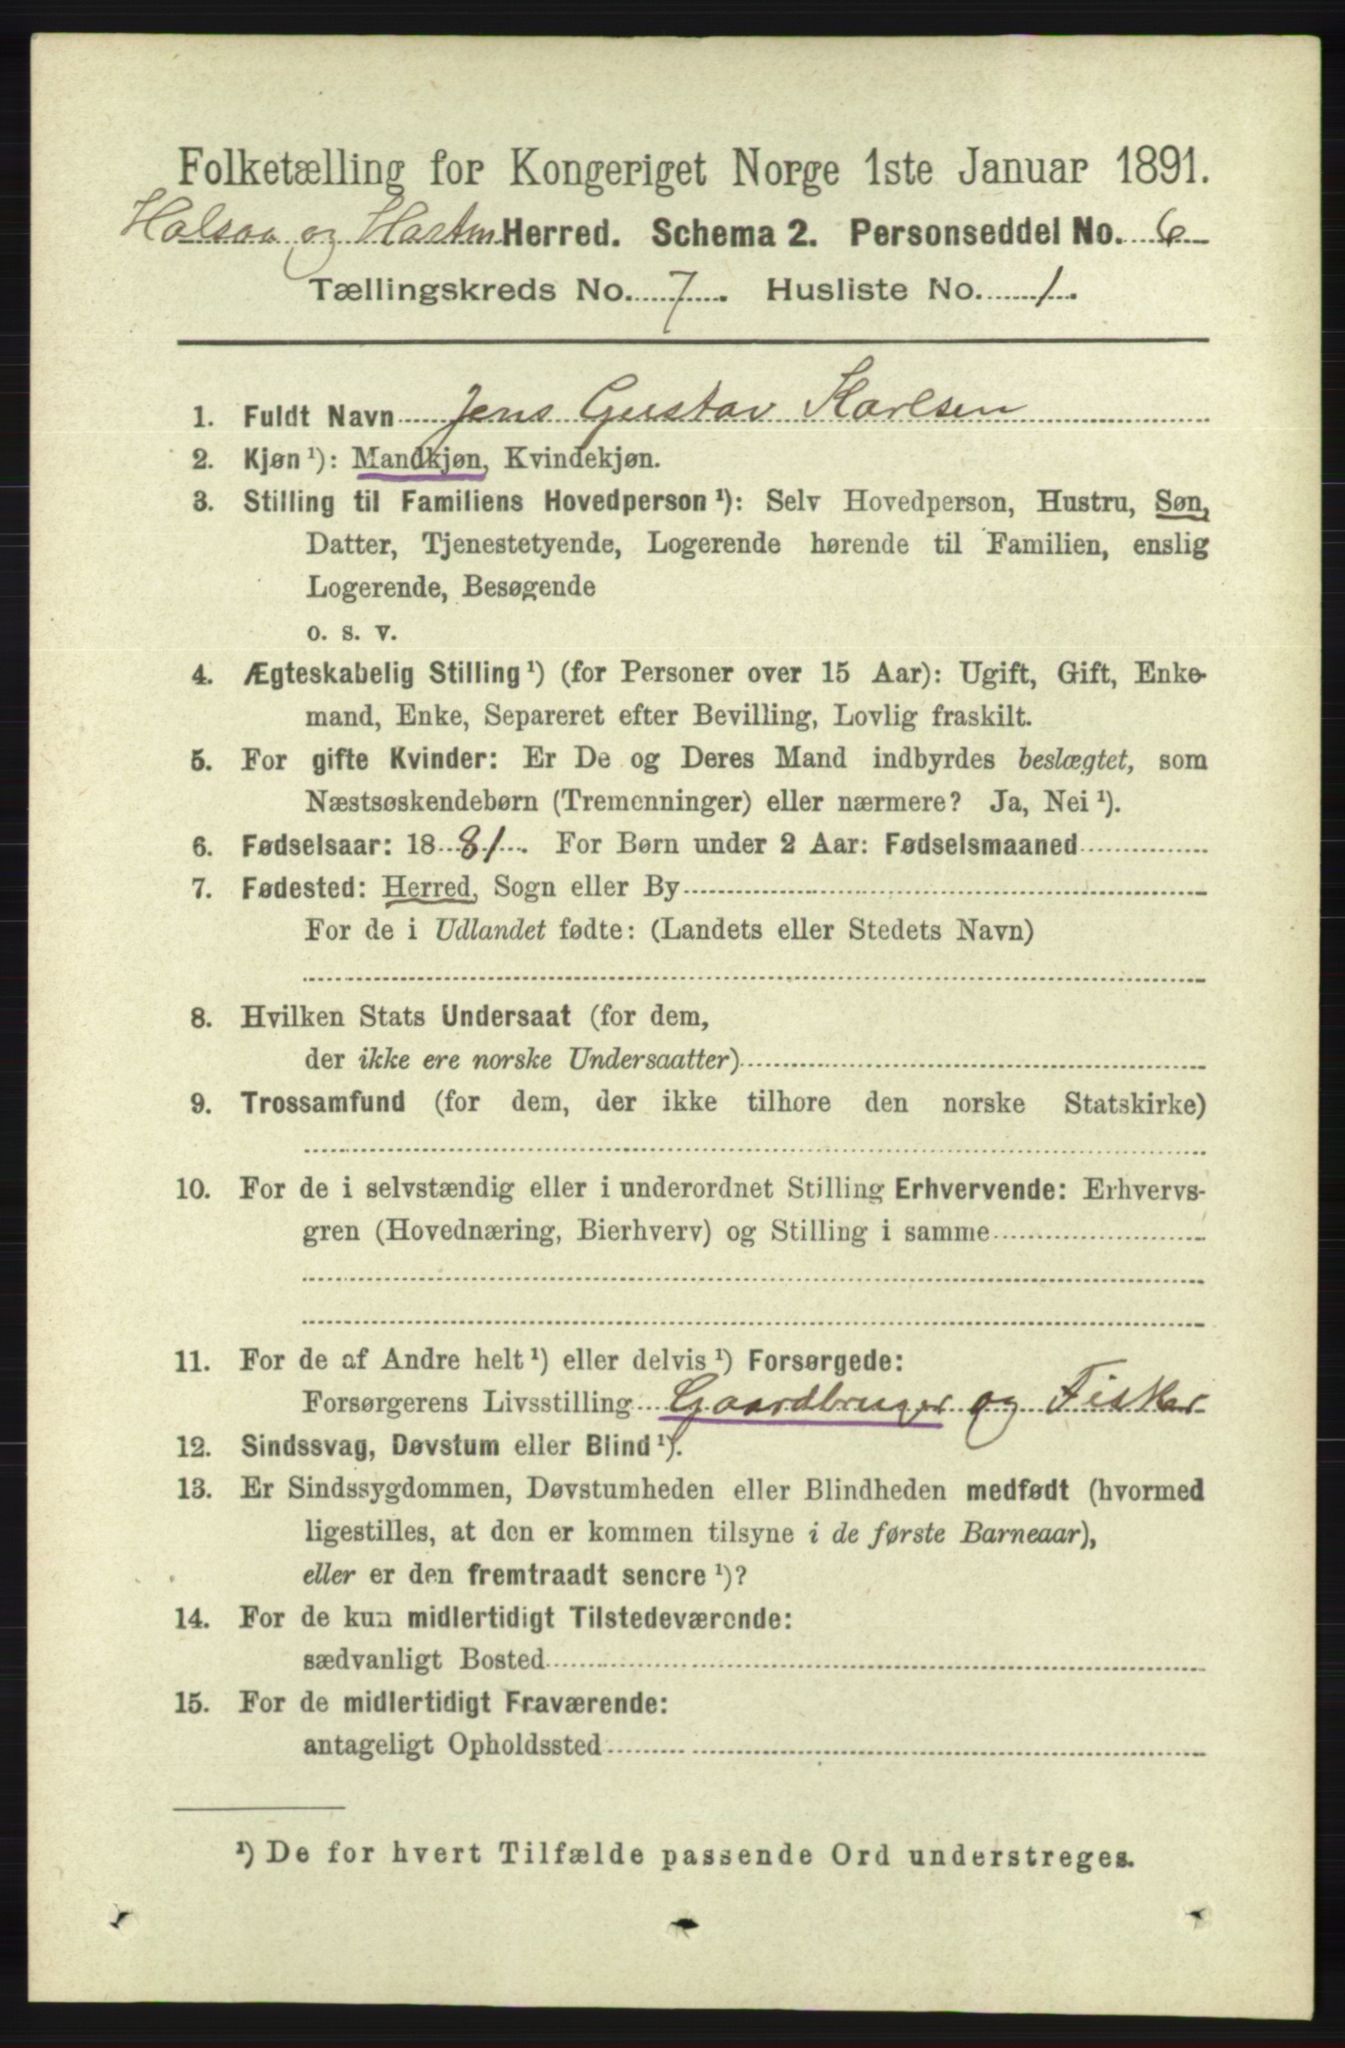 Folketælling for Kongeriget Norge 1ste Januar 1891.
Halsaa og Hartm Herred. Schema 2. Personseddel No. 6
Tællingskreds No. 7. Husliste No. 1.
1. Fuldt Navn Jens Gustav Karlsen
2. Kjøn¹): Mandkjøn, Kvindekjøn.
3. Stilling til Familiens Hovedperson¹): Selv Hovedperson, Hustru, Søn,
Datter, Tjenestetyende, Logerende hørende til Familien, enslig
Logerende, Besøgende
o. s. v.
4. Ægteskabelig Stilling¹) (for Personer over 15 Aar): Ugift, Gift, Enke-
mand, Enke, Separeret efter Bevilling, Lovlig fraskilt.
5. For gifte Kvinder: Er De og Deres Mand indbyrdes beslægtet, som
Næstsøskendebørn (Tremenninger) eller nærmere? Ja, Nei¹).
6. Fødselsaar: 1881. For Børn under 2 Aar: Fødselsmaaned
7. Fødested: Herred, Sogn eller By
For de i Udlandet fødte: (Landets eller Stedets Navn)
8. Hvilken Stats Undersaat (for dem,
der ikke ere norske Undersaatter)
9. Trossamfund (for dem, der ikke tilhore den norske Statskirke)
10. For de i selvstændig eller i underordnet Stilling Erhvervende: Erhvervs-
gren (Hovednæring, Bierhverv) og Stilling i samme
11. For de af Andre helt¹) eller delvis¹) Forsørgede:
Forsørgerens Livsstilling Gaardbruger og Fisker
12. Sindssvag, Døvstum eller Blind¹).
13. Er Sindssygdommen, Døvstumheden eller Blindheden medfødt (hvormed
ligestilles, at den er kommen tilsyne i de første Barneaar),
eller er den fremtraadt senere¹)?
14. For de kun midlertidigt Tilstedeværende:
sædvanligt Bosted
15. For de midlertidigt Fraværende:
antageligt Opholdssted
¹) De for hvert Tilfælde passende Ord understreges.